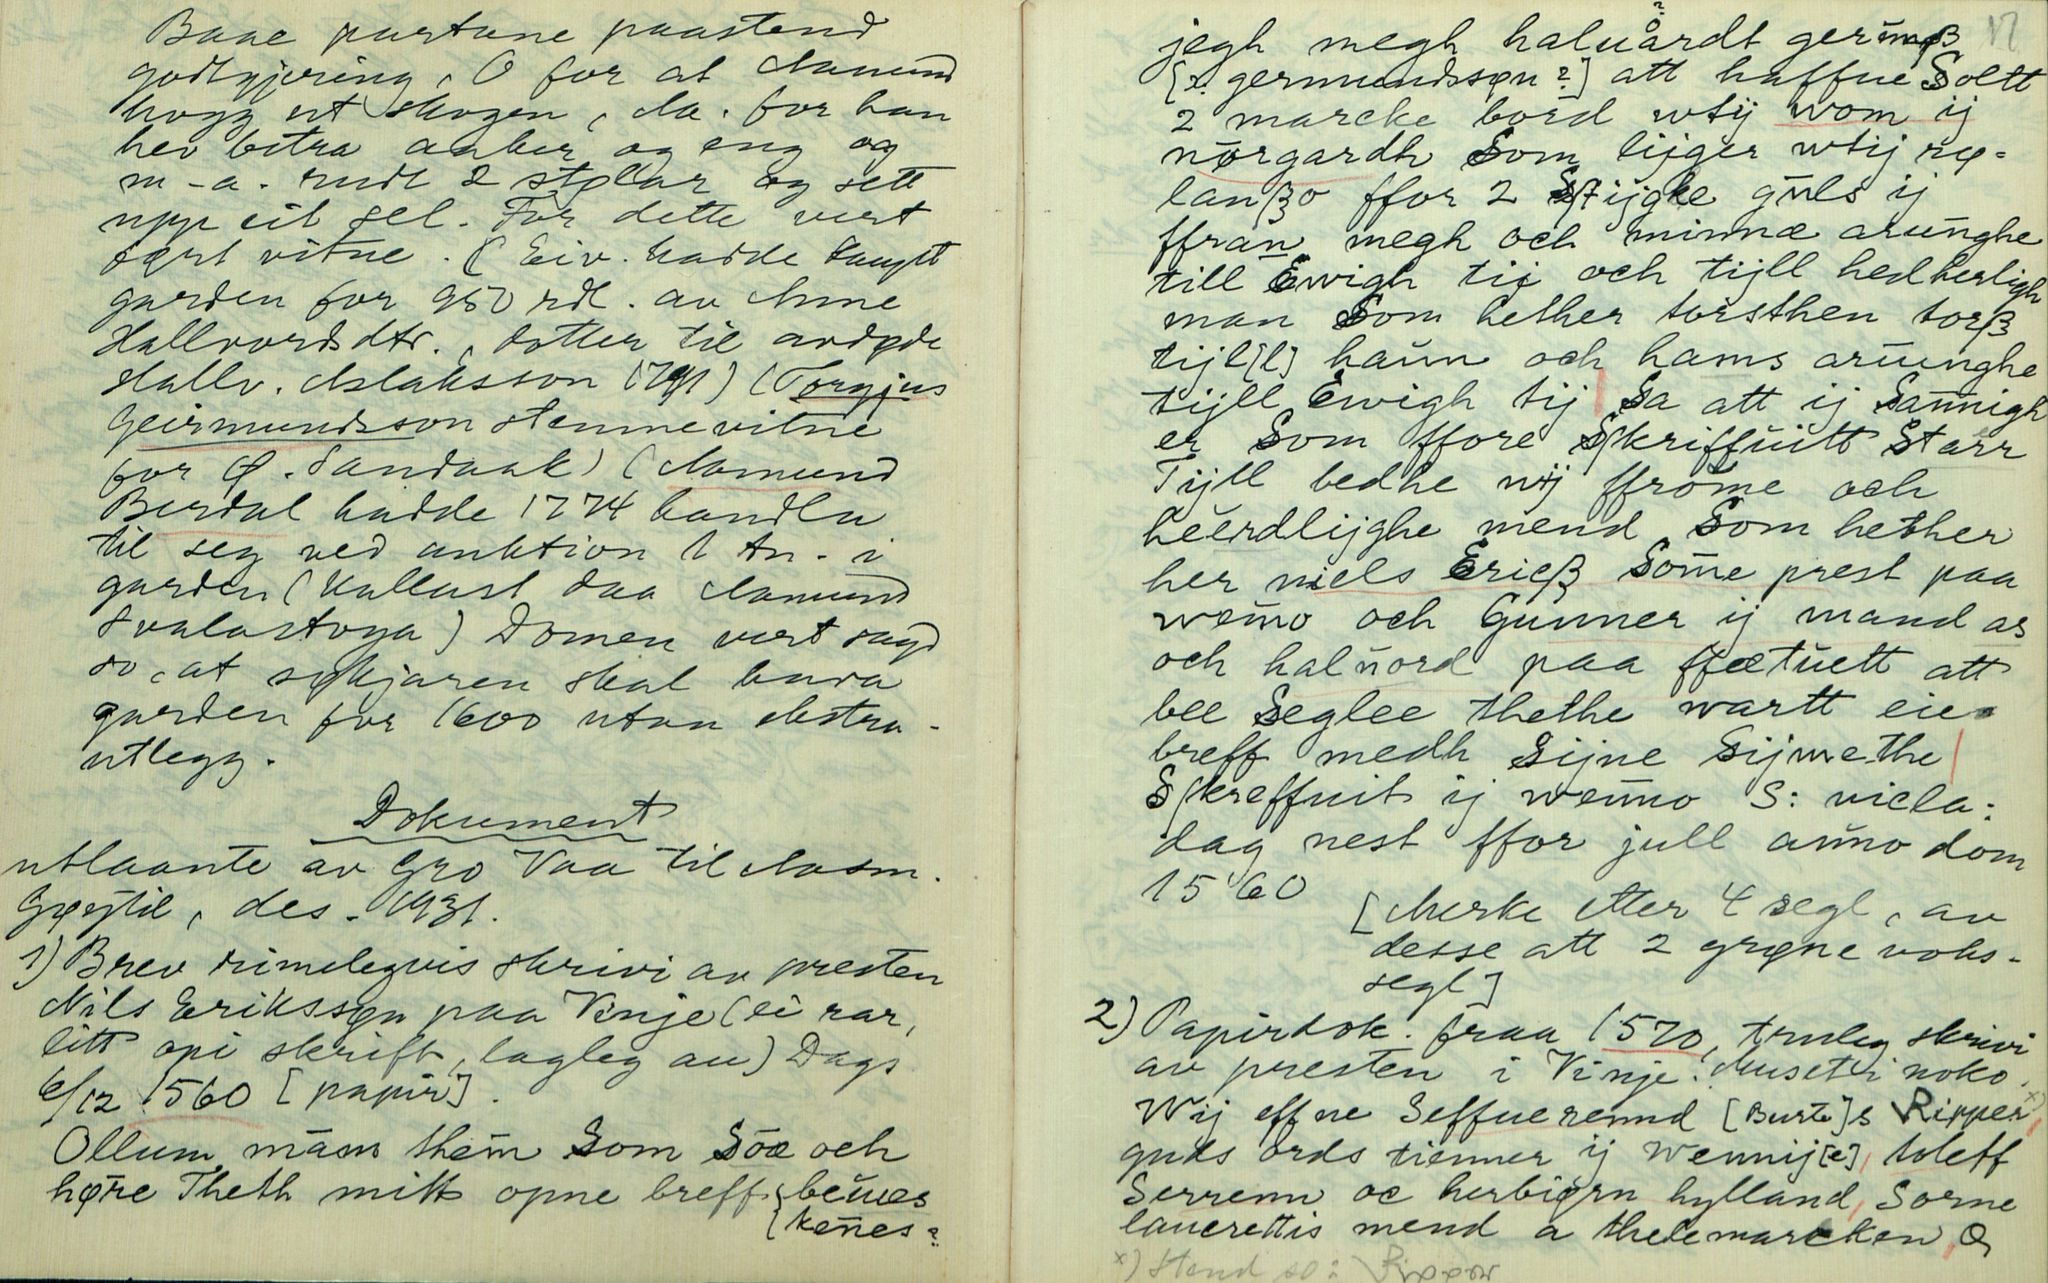 Baae partane paastend
godtgjering, O for at Aamund
hogg ut skogen, Aa. for han
hev betra aaker og eng og
m-a. rudt 2 støllar og sett
upp eit sel. For dette vert
ført vitne. (Eiv. hadde kaupt
garden for 950 rdl. av Anne
Hallvordsdtr., dotter til avdøde
Hallv. Aslaksson 1791) (Torgjus
Geirmundsson stemnevitne
for Ø. Sandaak) (Aamund
Berdal hadde 1774 handla
til seg ved auktion 1 tn. i
garden (kallast daa Aamund
Svalastoga) Domen vert sagd
so, at søkjaren skal hava
garden for 1600 utan ekstra-
utlegg.
Dokument
utlaante av Gro Vaa til Aasm.
Grøstil, des. 1931.
1) Brev rimelegvis skrivi av presten
Nils Erikssøn paa Vinje (ei rar,
litt opi skrift, lagleg au) Dags
6/12 1560 [papir].
Ollum mans them Som Söe och
høre Theth mitt opne breff bëues
kënes?
17
jegh megh haluårdt gerümß
[: germundssøn?] att haffue Soltt
2 marcke bord wtij wom ij
nørgardh Som lijger wtij rø-
lanßo ffor 2 Stijgke güls ij
ffran megh och minnæ arünghe
till Ewigh tii och tijll hedherligh
man Som hether torsthen torß
tijl[l] haün och hams arüunghe
tijll Ewigh tij Sa att ij Sannigh
er Som ffore Skriffuitt Starr
Tijll bedhe wij ffrome och
heerdlijghe mend Som hether
her niels Erieß Some prest paa
wenno och Gunner ij mand as
och halüord paa ffætuett att
bee Seglee thethe wartt eie
breff medh Sijne Sijwethe
Skreffuit ij wenno S: nicla:
dag nest ffor jull anno dom
1560
[Merke etter 4 segl, av
desse att 2 grøne voks-
segl]
2) Papirdok. fraa 1570, truleg skrivi
av presten i Vinje. Muset i noko.
Wij effne Seffueremd [Burte]s Ripper x)
guds ords tienner ij Wennij[e], toleff
Serrenn oc herbiørn hylland, Sorne
lauerettis mend a thelemarcken, O
x) Stend so: Ripper